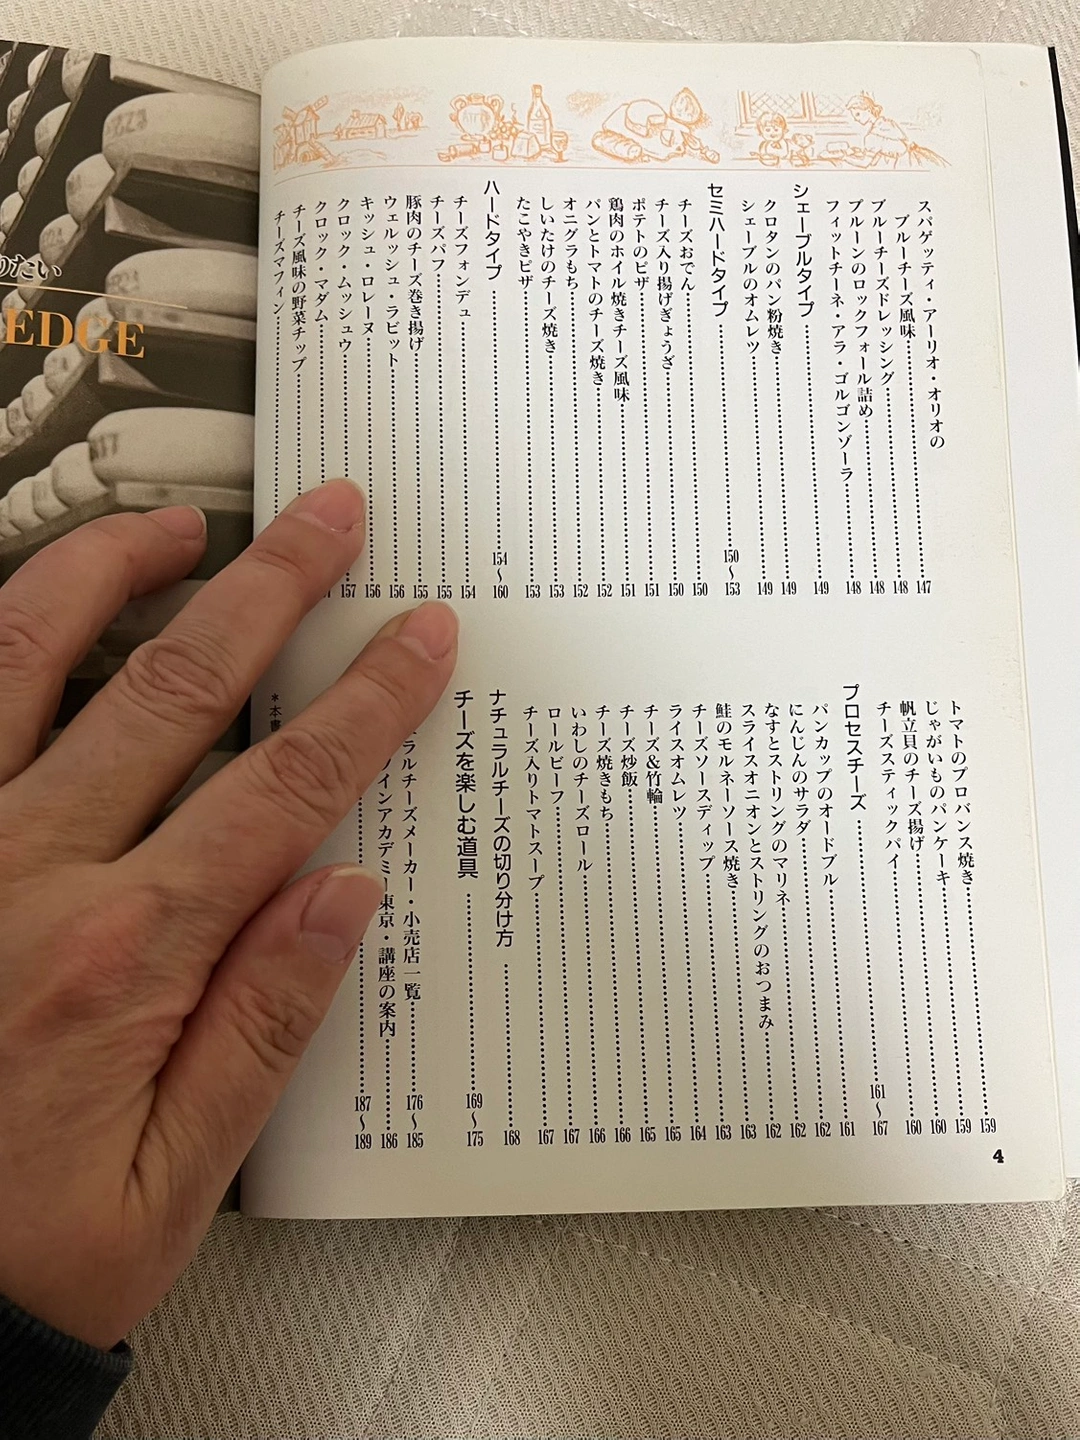 スパゲッティ・アーリオ・オリオの
ブルーチーズ風味……147
ブルーチーズドレッシング……148
プルーンのロックフォール詰め……148
フィットチーネ・アラ・ゴルゴンゾーラ……148
シェーブルタイプ……149
クロタンのパン粉焼き……149
シェーブルのオムレツ……149
セミハードタイプ……150〜153
チーズおでん……150
チーズ入り揚げぎょうざ……150
ポテトのピザ……151
鶏肉のホイル焼きチーズ風味……151
パンとトマトのチーズ焼き……152
オニグラもち……152
しいたけのチーズ焼き……153
たこやきピザ……153
ハードタイプ……154〜160
チーズフォンデュ……154
チーズパフ……155
豚肉のチーズ巻き揚げ……155
ウェルッシュ・ラビット……156
キッシュ・ロレーヌ……156
クロック・ムッシュウ……157
クロック・マダム……
チーズ風味の野菜チップ……
チーズマフィン……
トマトのプロバンス焼き……159
じゃがいものパンケーキ……159
帆立貝のチーズ揚げ……160
チーズスティックパイ……160
プロセスチーズ……161〜167
パンカップのオードブル……161
にんじんのサラダ……162
なすとストリングのマリネ……162
スライスオニオンとストリングのおつまみ……162
鮭のモルネーソース焼き……163
チーズソースディップ……163
ライスオムレツ……164
チーズ&竹輪……165
チーズ炒飯……165
チーズ焼きもち……166
いわしのチーズロール……166
ロールビーフ……167
チーズ入りトマトスープ……167
ナチュラルチーズの切り分け方……168
チーズを楽しむ道具……169〜175
ラルチーズメーカー・小売店一覧……176〜185
インアカデミー東京・講座の案内……186
……187〜189
＊本書
4
りたい
EDGE